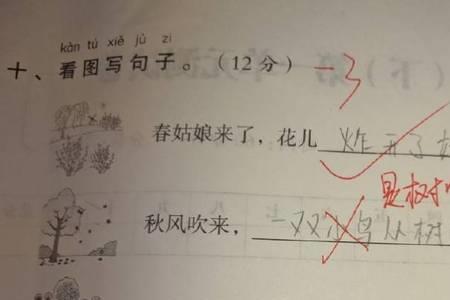 kàn tú xiě jù zi
十、看图写句子。（12分） -3
春姑娘来了，花儿 炸开了
是树
秋风吹来，一双小鸟从树